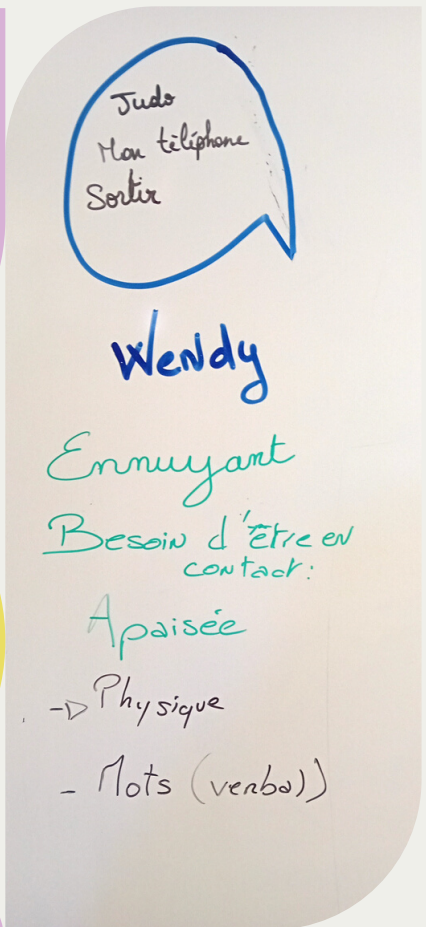 Judo
Mon téléphone
Sortir
Wendy
Ennuyant
Besoin d'être en
contact:
Apaisée
-> Physique
- Mots (verbal)